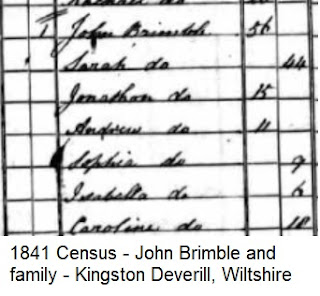 1 John Brimble 56
Sarah do 44
Jonathon do 15
Andrew do 11
Sophia do 9
Isabella do 6
Caroline do 18
1841 Census - John Brimble and
family - Kingston Deverill, Wiltshire